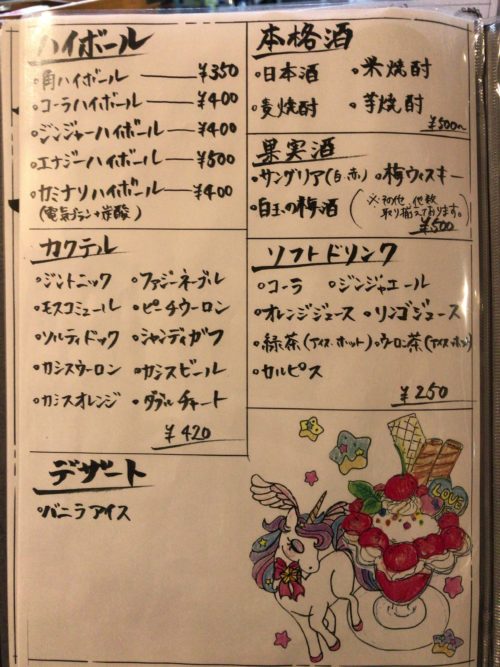 ハイボール
・角ハイボール ¥350
・コーラハイボール ¥400
・ジンジャーハイボール ¥400
・エナジーハイボール ¥500
・カミナリハイボール ¥400
(電気ブラン+炭酸)
カクテル
・ジントニック ・ファジーネーブル
・モスコミュール ・ピーチウーロン
・ソルティドック ・シャンディガフ
・カシスウーロン ・カシスビール
・カシスオレンジ ・ダブルチャート
¥420
デザート
・バニラアイス
本格酒
・日本酒 ・米焼酎
・麦焼酎 ・芋焼酎
¥500〜
果実酒
・サングリア(白、赤) ・梅ウィスキー
・白玉の梅酒 (※その他、他数
取り揃えております。)
¥500
ソフトドリンク
・コーラ ・ジンジャエール
・オレンジジュース ・リンゴジュース
・緑茶(アイス・ホット) ・ウーロン茶(アイス・ホット)
・カルピス
¥250
LOVE